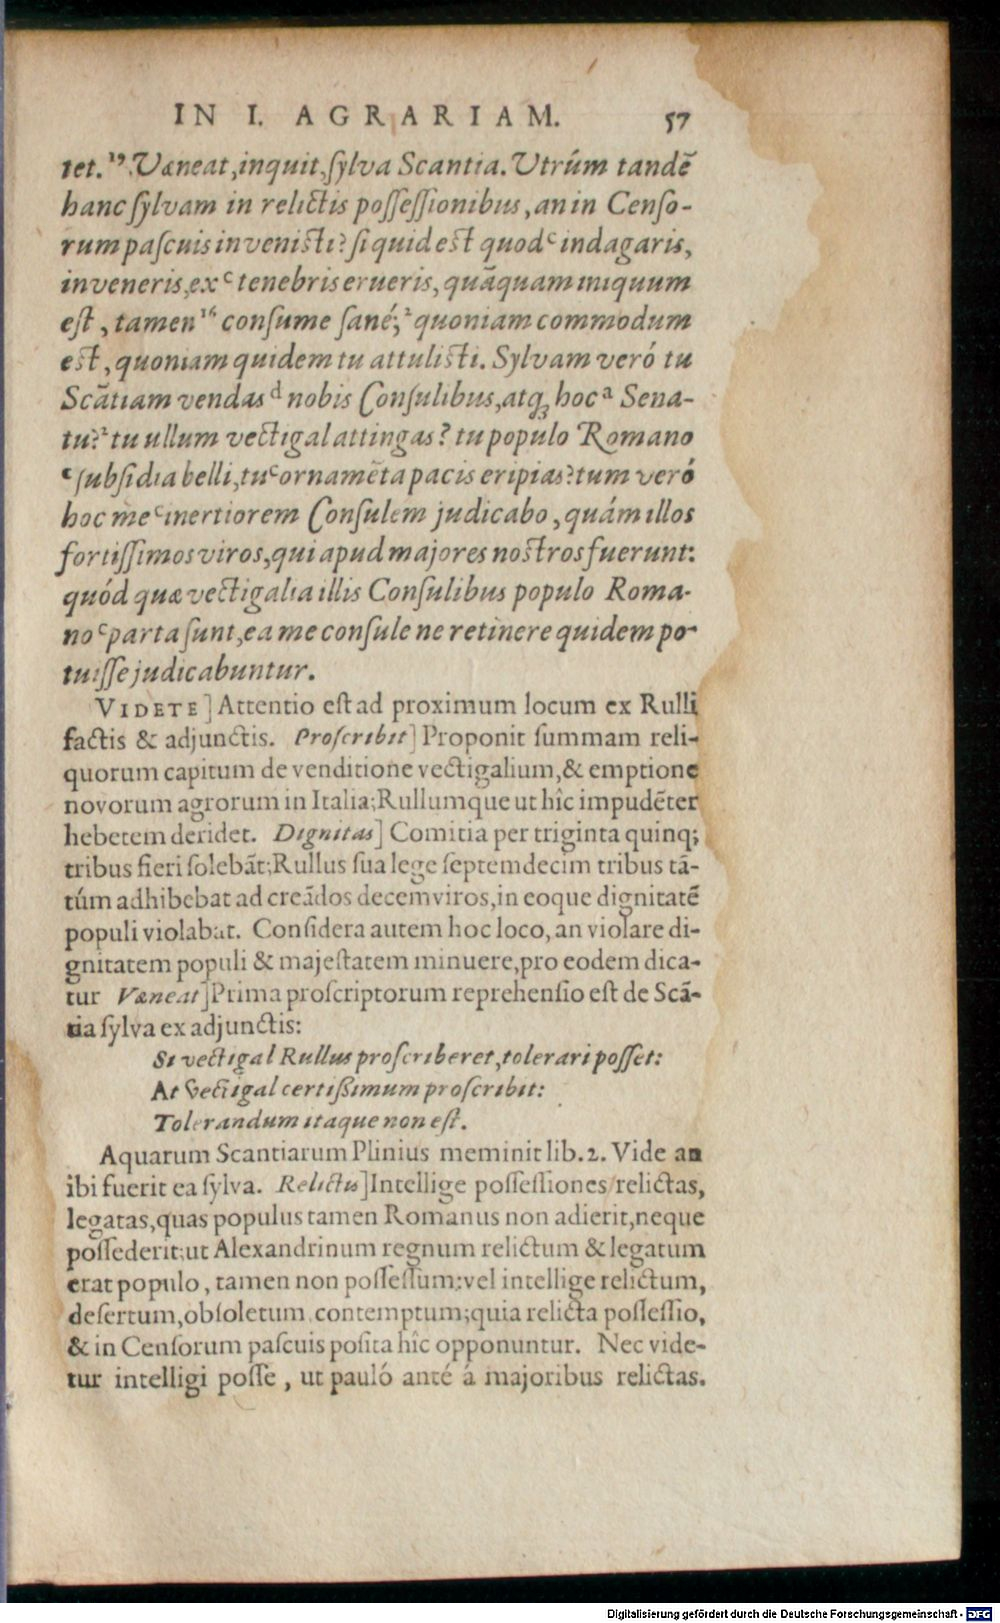 IN I. AGRARIAM. 57
tet.¹⁹ Væneat, inquit, sylva Scantia. Utrúm tandẽ
hanc sylvam in relictis possessionibus, an in Censo-
rum pascuis invenisti? si quid est quod ᶜ indagaris,
inveneris, ex ᶜ tenebris erueris, quãquam iniquum
est, tamen ¹⁶ consume sané, ² quoniam commodum
est, quoniam quidem tu attulisti. Sylvam veró tu
Scãtiam vendas ᵈ nobis Consulibus, atq; hoc ᵃ Sena-
tu? ² tu ullum vectigal attingas? tu populo Romano
ᶜ subsidia belli, tu ᶜ ornamẽta pacis eripias? tum veró
hoc me ᶜ inertiorem Consulem judicabo, quám illos
fortissimos viros, qui apud majores nostros fuerunt:
quód quæ vectigalia illis Consulibus populo Roma-
no ᶜ parta sunt, ea me consule ne retinere quidem po-
tuisse judicabuntur.
VIDETE] Attentio est ad proximum locum ex Rulli
factis & adjunctis. Proscribit] Proponit summam reli-
quorum capitum de venditione vectigalium, & emptione
novorum agrorum in Italia; Rullumque ut hîc impudẽter
hebetem deridet. Dignitas] Comitia per triginta quinq;
tribus fieri solebãt; Rullus sua lege septemdecim tribus tã-
túm adhibebat ad creãdos decemviros, in eoque dignitatẽ
populi violabat. Considera autem hoc loco, an violare di-
gnitatem populi & majestatem minuere, pro eodem dica-
tur Væneat] Prima proscriptorum reprehensio est de Scã-
tia sylva ex adjunctis:
Si vectigal Rullus proscriberet, tolerari posset:
At vectigal certissimum proscribit:
Tolerandum itaque non est.
Aquarum Scantiarum Plinius meminit lib. 2. Vide an
ibi fuerit ea sylva. Relictis] Intellige possessiones relictas,
legatas, quas populus tamen Romanus non adierit, neque
possederit: ut Alexandrinum regnum relictum & legatum
erat populo, tamen non possessum: vel intellige relictum,
desertum, obsoletum contemptum; quia relicta possessio,
& in Censorum pascuis posita hîc opponuntur. Nec vide-
tur intelligi posse, ut pauló anté á majoribus relictas.
Digitalisierung gefördert durch die Deutsche Forschungsgemeinschaft - DFG